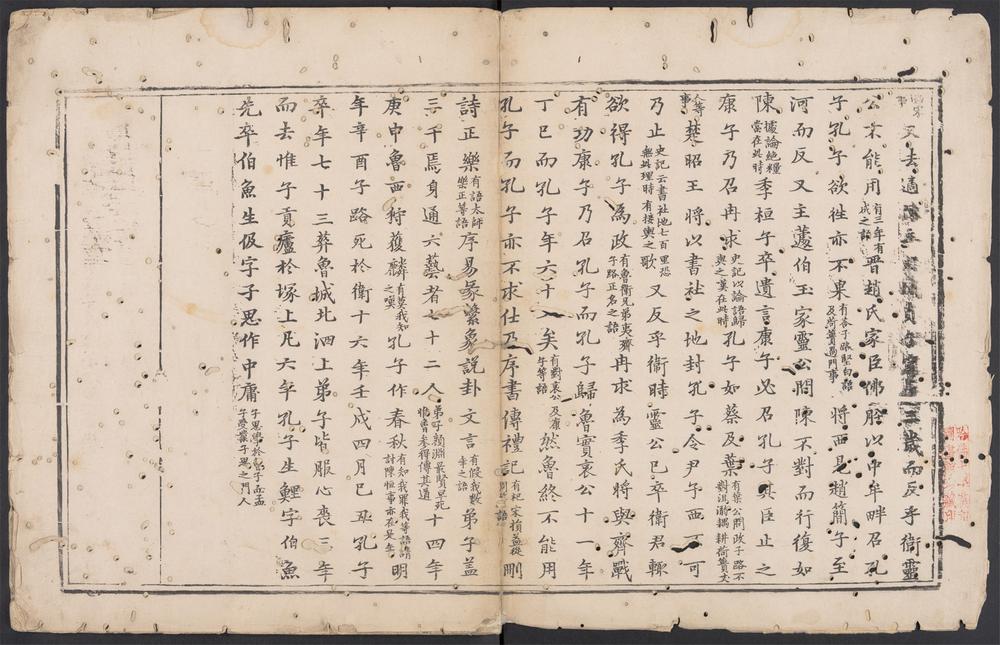 又去適三歲而反乎衛靈
公不能用有三年有成之語晉趙氏家臣佛肸以中牟畔召孔
子孔子欲往亦不果有答子路堅白語及荷蕢過門事將西見趙簡子至
河而反又主蘧伯玉家靈公問陳不對而行復如
陳據論語絕糧當在此時季桓子卒遺言康子必召孔子其臣止之
康子乃召冉求史記以論語歸與之嘆在此時孔子如蔡及葉有葉公問政子路不對沮溺耦耕荷蓧丈
人等事楚昭王將以書社之地封孔子令尹子西不可
乃止史記云書社地七百里恐無此理時有接輿之歌又反乎衛時靈公已卒衛君輒
欲得孔子為政有魯衛兄弟夷齊子路正名之語冉求為季氏將與齊戰
有功康子乃召孔子而孔子歸魯實哀公十一年
丁巳而孔子年六十八矣有對哀公及康子等語然魯終不能用
孔子而孔子亦不求仕乃序書傳禮記有杞宋損益從周等語刪
詩正樂有語太師樂正等語序易彖繫象說卦文言有假我數年之語弟子蓋
三千焉身通六藝者七十二人弟子顏淵最賢早死惟曾參得傳其道十四年
庚申魯西狩獲麟有莫我知之嘆孔子作春秋有知我罪我等語請討陳恒事亦在是年明
年辛酉子路死於衛十六年壬戌四月己丑孔子
卒年七十三葬魯城北泗上弟子皆服心喪三年
而去惟子貢廬於塚上凡六年孔子生鯉字伯魚
先卒伯魚生伋字子思作中庸子思學於曾子而孟子受業子思之門人